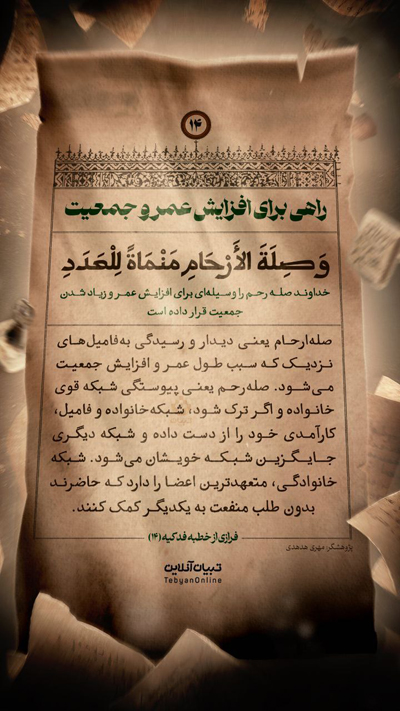 ۱۴
راهی برای افزایش عمر و جمعیت
وَصِلَةَ الأَرْحَامِ مَنْمَاةً لِلْعَدَدِ
خداوند صله رحم را وسیله‌ای برای افزایش عمر و زیاد شدن
جمعیت قرار داده است
صله‌ارحام یعنی دیدار و رسیدگی به‌فامیل‌های
نزدیک که سبب طول عمر و افزایش جمعیت
می‌شود. صله‌رحم یعنی پیوستگی شبکه قوی
خانواده و اگر ترک شود، شبکه‌خانواده و فامیل،
کارآمدی خود را از دست داده و شبکه دیگری
جایگزین شبکه خویشان می‌شود. شبکه
خانوادگی، متعهدترین اعضا را دارد که حاضرند
بدون طلب منفعت به یکدیگر کمک کنند.
فرازی از خطبه فدکیه (۱۴)
پژوهشگر: مهری هدهدی
تبیان‌آنلاین
TebyanOnline